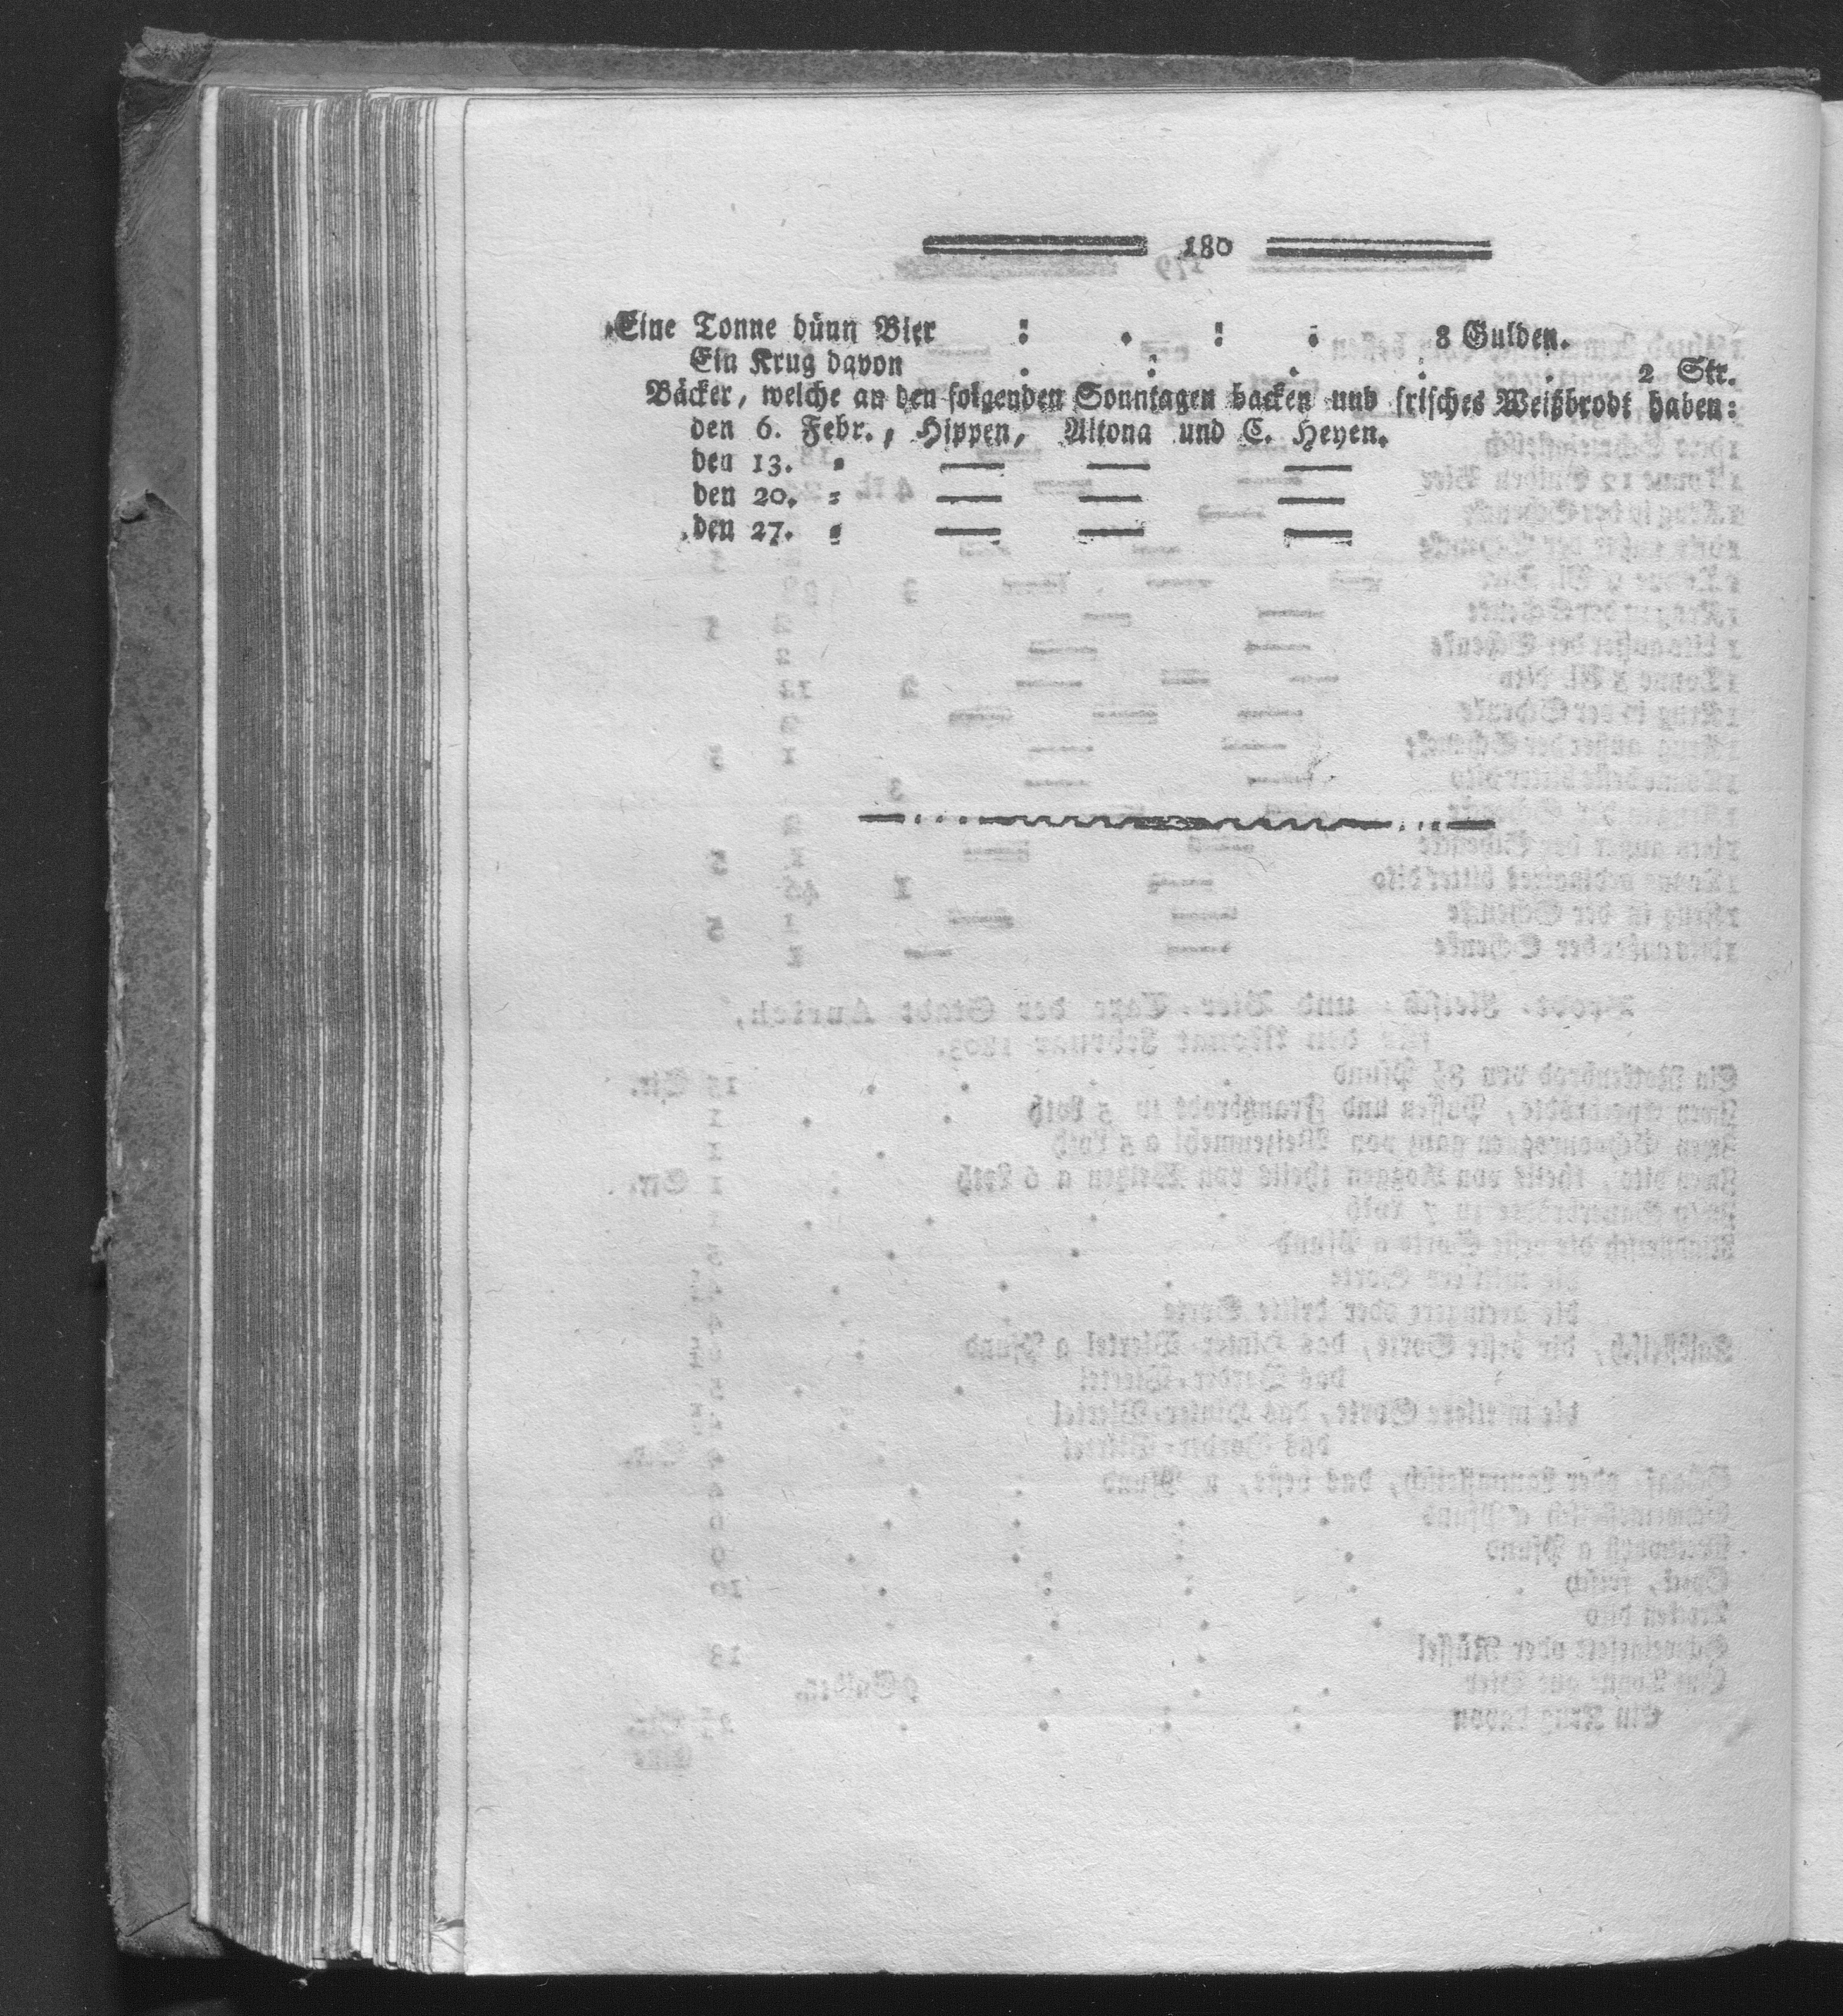 180
Eine Tonne dünn Bier : . : . 8 Gulden.
Ein Krug davon . : . . . 2 Str.
Bäcker, welche an den folgenden Sonntagen backen und frisches Weißbrodt haben:
den 6. Febr., Hippen, Altona und C. Heyen.
den 13. = — — —
den 20. = — — —
den 27. = — — —